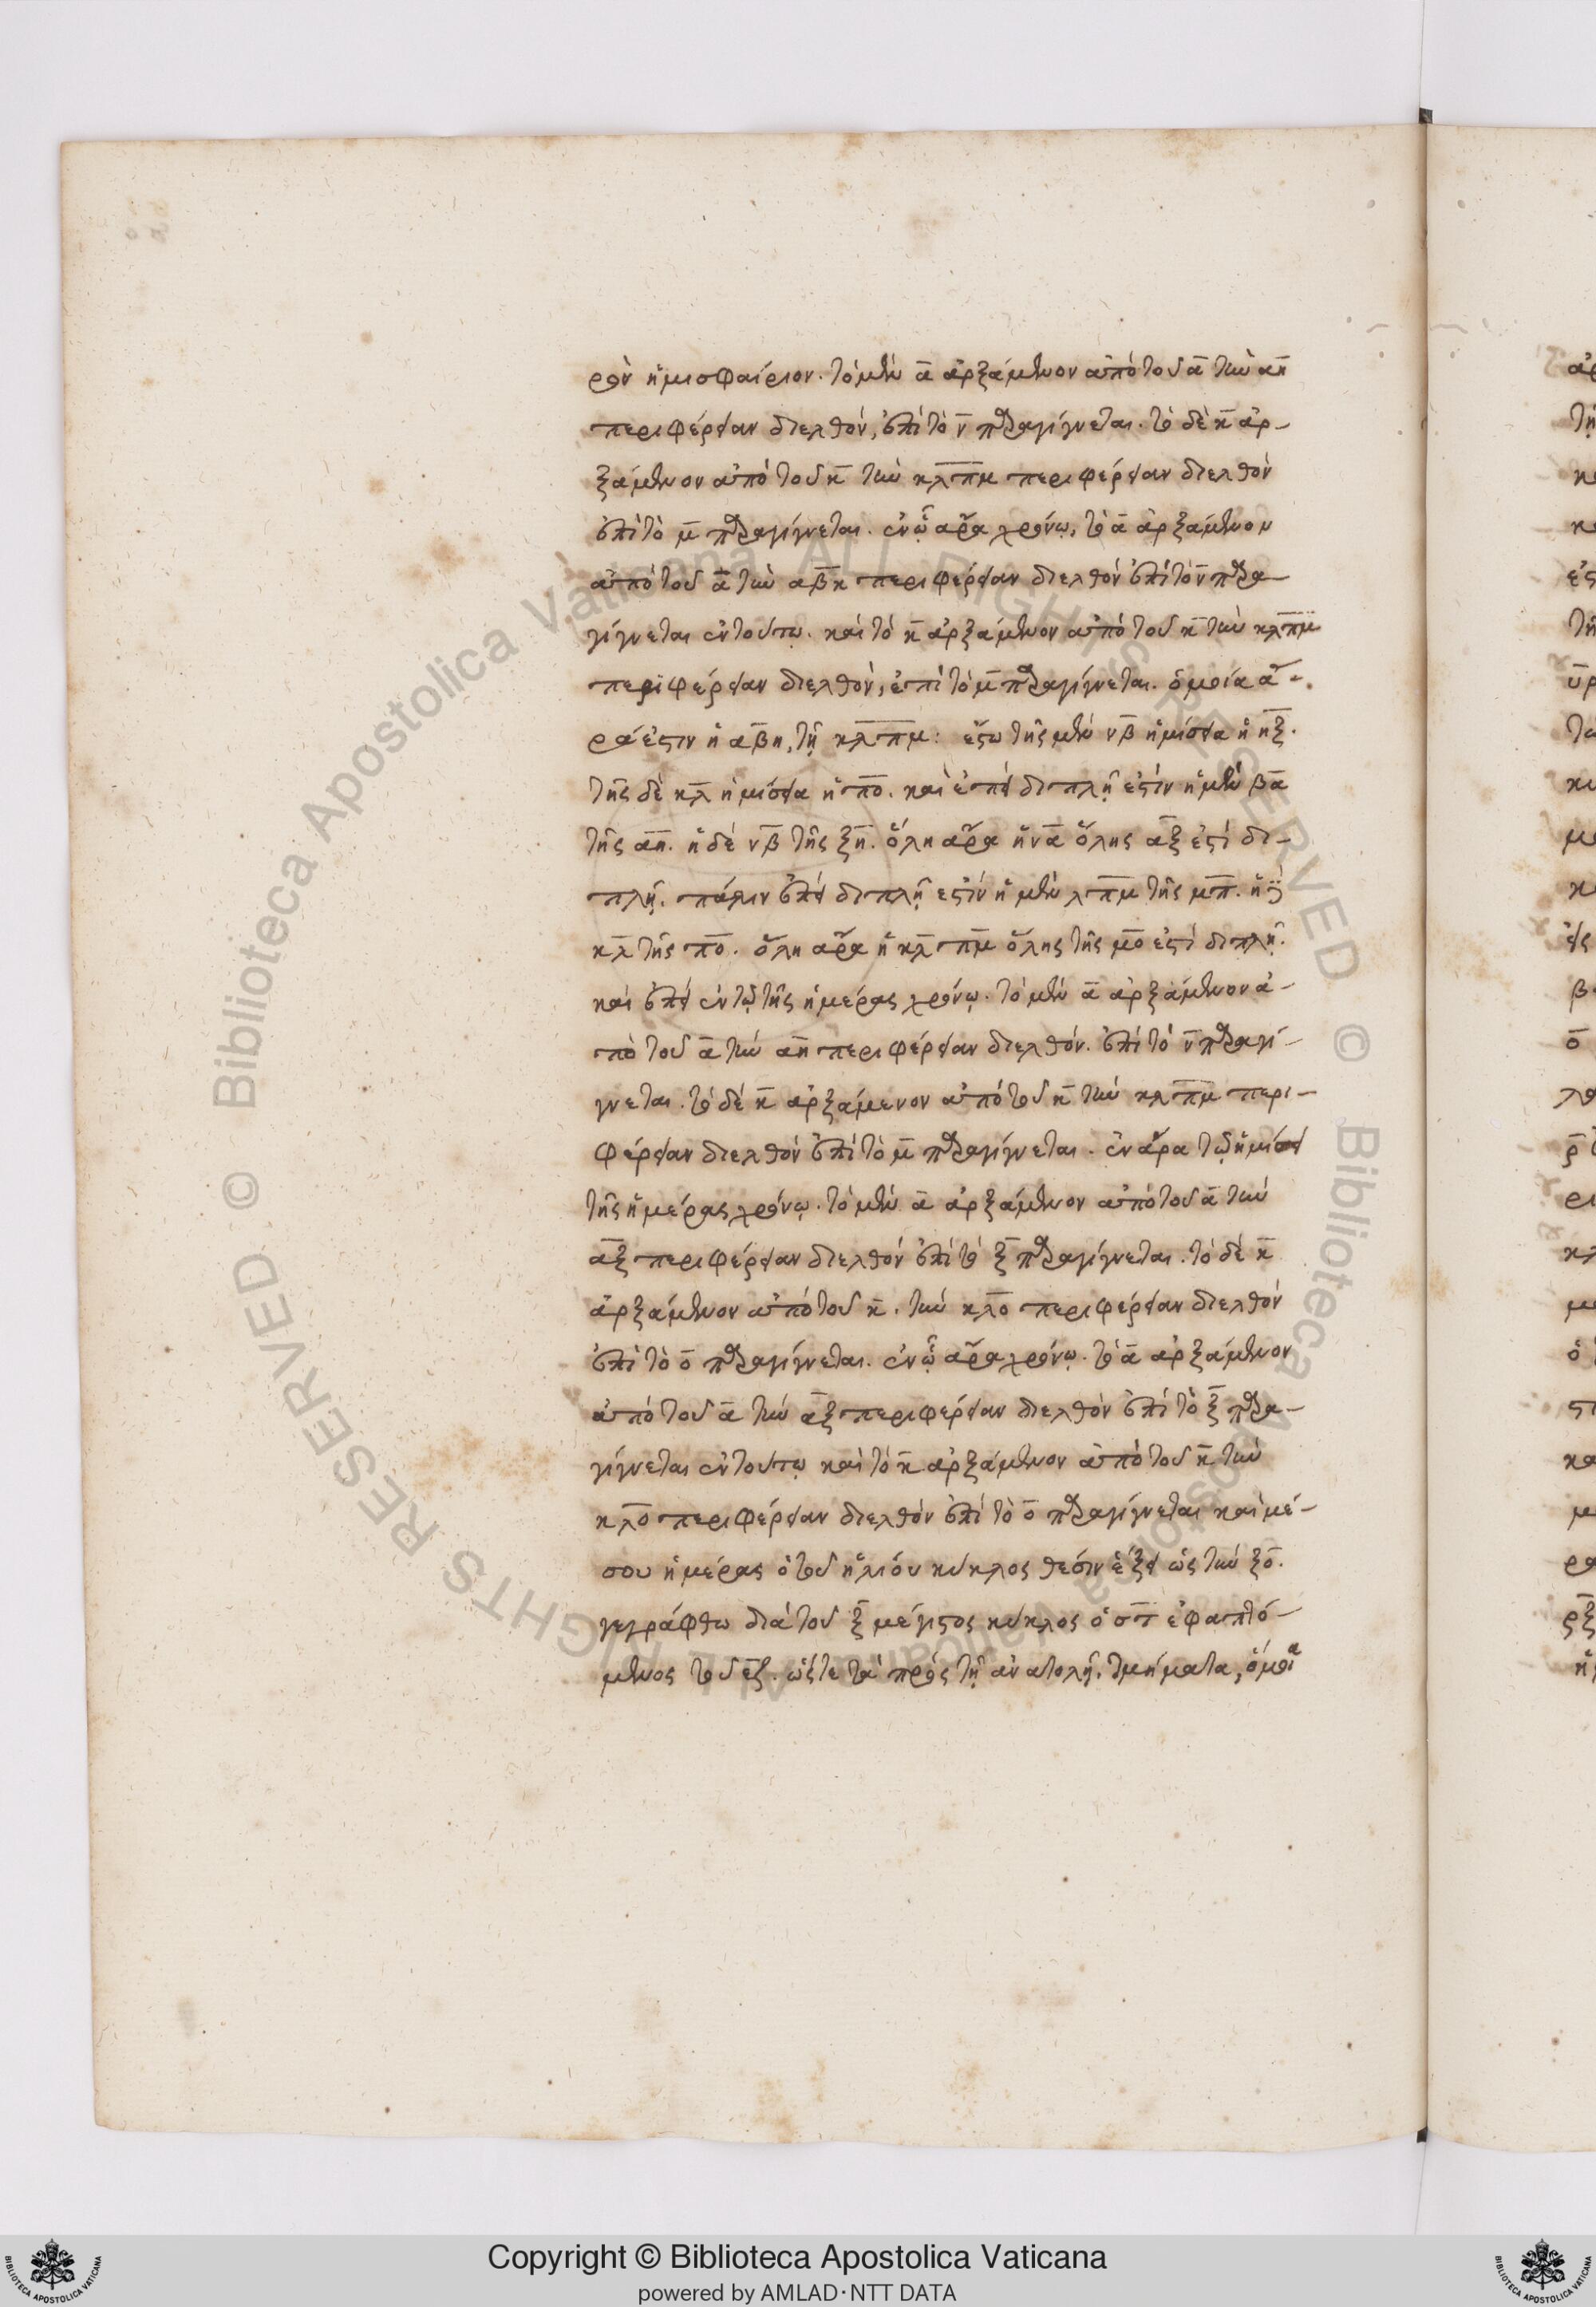 ρὸν ἡμισφαίριον. τὸ μὲν α̅ ἀρξάμενον ἀπὸ τοῦ α̅ τὴν α̅η̅
περιφέρειαν διελθὸν, ἐπὶ τὸ ν̅ παραγίγνεται. τὸ δὲ κ̅ ἀρ-
ξάμενον ἀπὸ τοῦ κ̅ τὴν κ̅λ̅π̅μ̅ περιφέρειαν διελθὸν
ἐπὶ τὸ μ̅ παραγίγνεται. ἐν ᾧ ἄρα χρόνῳ, τὸ α̅ ἀρξάμενον
ἀπὸ τοῦ α̅ τὴν α̅β̅η̅ περιφέρειαν διελθὸν ἐπὶ τὸ ν̅ παρα-
γίγνεται ἐν τούτῳ. καὶ τὸ κ̅ ἀρξάμενον ἀπὸ τοῦ κ̅ τὴν κ̅λ̅π̅μ̅
περιφέρειαν διελθὸν, ἐπὶ τὸ μ̅ παραγίγνεται. ὁμοία ἄ-
ρά ἐστιν ἡ α̅β̅η̅, τῇ κ̅λ̅π̅μ̅: ἔστω τῆς μὲν ν̅β̅ ἡμίσεια ἡ η̅ξ̅.
τῆς δὲ κ̅λ̅ ἡμίσεια ἡ π̅ο̅. καὶ ἐπεὶ διπλῆ ἐστὶν ἡ μὲν β̅α̅
τῆς α̅η̅. ἡ δὲ ν̅β̅ τῆς ξ̅η̅. ὅλη ἄρα ἡ ν̅α̅ ὅλης α̅ξ̅ ἐστὶ δι-
πλῆ. πάλιν ἐπεὶ διπλῆ ἐστὶν ἡ μὲν λ̅π̅μ̅ τῆς μ̅π̅. ἡ δὲ
κ̅λ̅ τῆς π̅ο̅. ὅλη ἄρα ἡ κ̅λ̅ π̅μ̅ ὅλης τῆς μ̅ο̅ ἐστὶ διπλῆ.
καὶ ἐπεὶ ἐν τῷ τῆς ἡμέρας χρόνῳ. τὸ μὲν α̅ ἀρξάμενον ἀ-
πὸ τοῦ α̅ τὴν α̅η̅ περιφέρειαν διελθὸν. ἐπὶ τὸ ν̅ παραγί-
γνεται. τὸ δὲ κ̅ ἀρξάμενον ἀπὸ τοῦ κ̅ τὴν κ̅λ̅π̅μ̅ περι-
φέρειαν διελθὸν ἐπὶ τὸ μ̅ παραγίγνεται. ἐν ἄρα τῷ ἡμίσει
τῆς ἡμέρας χρόνῳ. τὸ μὲν α̅ ἀρξάμενον ἀπὸ τοῦ α̅ τὴν
α̅ξ̅ περιφέρειαν διελθὸν ἐπὶ τὸ ξ̅ παραγίγνεται. τὸ δὲ κ̅
ἀρξάμενον ἀπὸ τοῦ κ̅. τὴν κ̅λ̅ο̅ περιφέρειαν διελθὸν
ἐπὶ τὸ ο̅ παραγίγνεται. ἐν ᾧ ἄρα χρόνῳ. τὸ α̅ ἀρξάμενον
ἀπὸ τοῦ α̅ τὴν α̅ξ̅ περιφέρειαν διελθὸν ἐπὶ τὸ ξ̅ παρα-
γίγνεται ἐν τούτῳ καὶ τὸ κ̅ ἀρξάμενον ἀπὸ τοῦ κ̅ τὴν
κ̅λ̅ο̅ περιφέρειαν διελθὸν ἐπὶ τὸ ο̅ παραγίγνεται καὶ μέ-
σου ἡμέρας ὁ τοῦ ἡλίου κύκλος θέσιν ἕξει ὡς τὴν ξ̅ο̅.
γεγράφθω διὰ τοῦ ξ̅ μέγιστος κύκλος ὁ σ̅π̅ ἐφαπτό-
μενος τοῦ ε̅ζ̅. ὥστε τὰ πρὸς τῇ ἀνατολῇ, τμήματα, ὅμοια
Copyright © Biblioteca Apostolica Vaticana
powered by AMLAD·NTT DATA